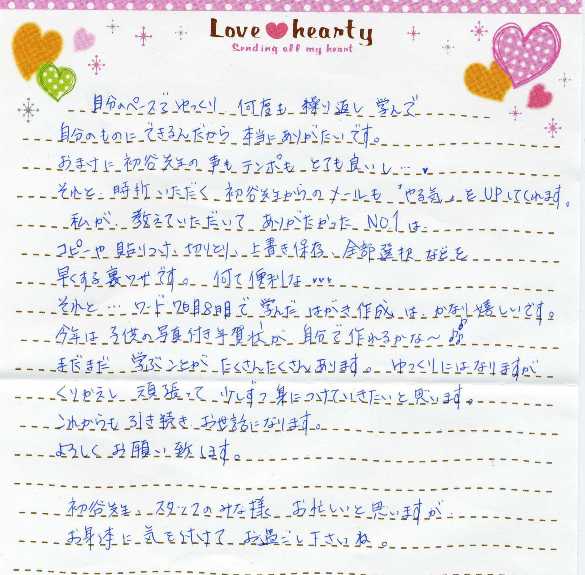 Love hearty
Sending all my heart
自分のペースでゆっくり 何度も 繰り返し 学んで
自分のものに できるんだから 本当に ありがたいです。
おまけに 初谷先生の 声も テンポも とても良いし…
それと、時折いただく 初谷先生からの メールも 「やる気」を UPしてくれます。
私が、教えていただいて ありがたかった NO.1は、
コピーや 貼りつけ、切りとり、上書き保存、全部選択 などを
早くする裏ワザです。 何て便利な…
それと… ワード7日目8日目で 学んだ はがき作成は、かなり嬉しいです。
今年は 子供の写真付き年賀状が 自分で 作れるかな〜♪
まだまだ 学ぶことが たくさんたくさんあります。 ゆっくりにはなりますが
くりかえし 頑張って 少しずつ 身につけていきたいと思います。
これからも 引き続き お世話になります。
よろしく お願い致します。
初谷先生、スタッフのみな様 お忙しいと思いますが
お身体に 気を付けて お過ごし下さいね。